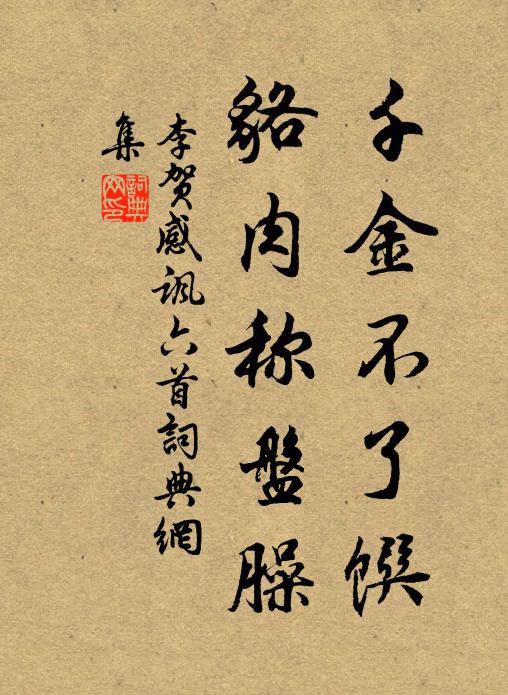 千金不了饌
貉肉称盤臊
李贺感讽六首詞典網
集
詞典网印